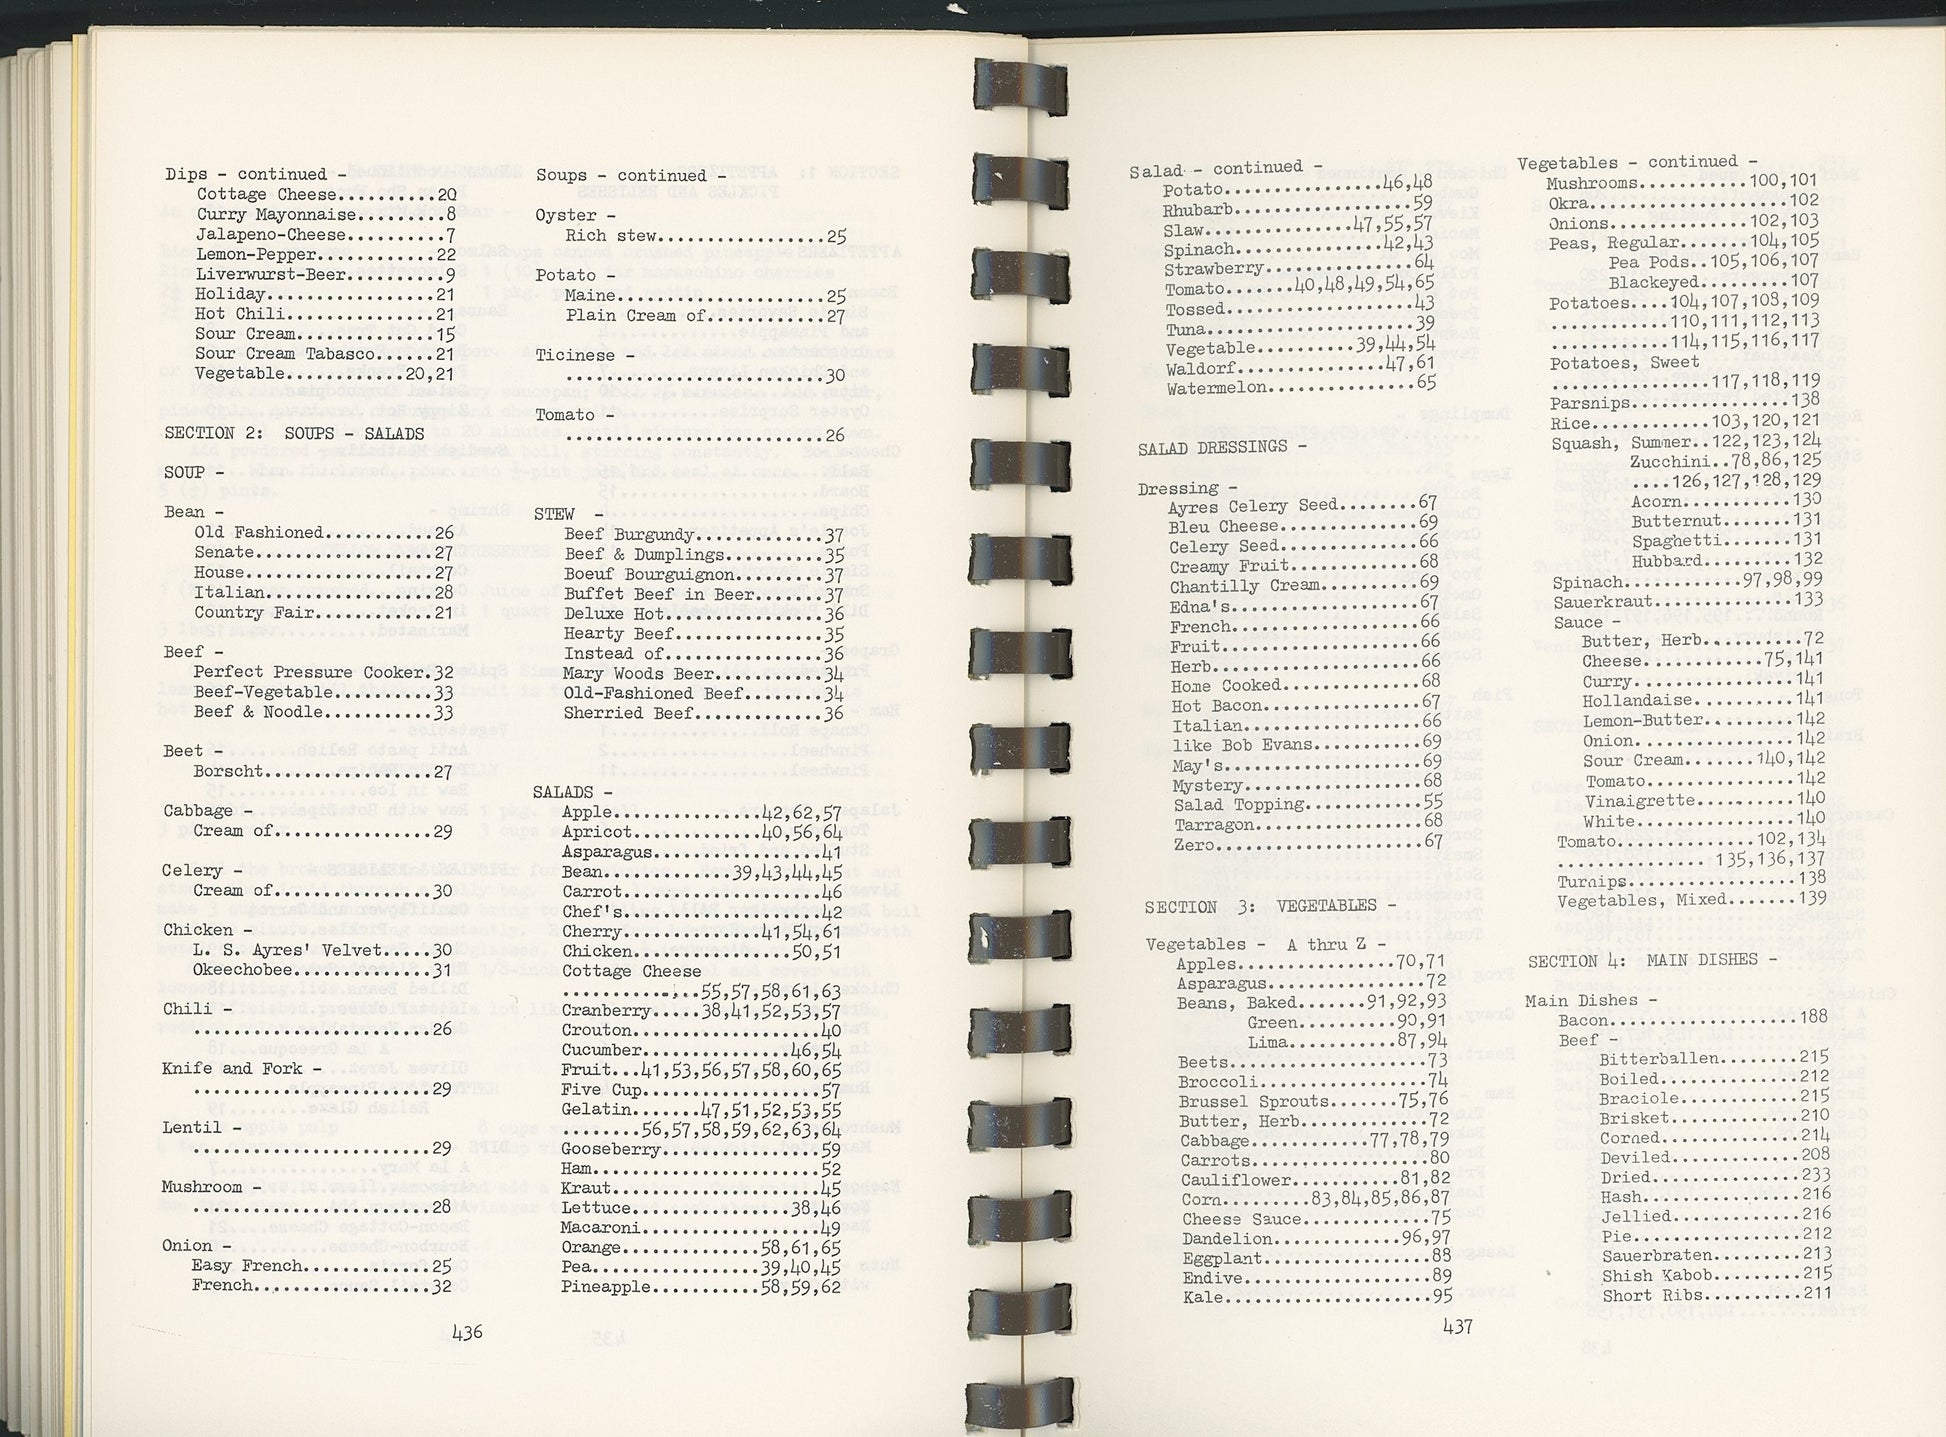 Dips - continued -
Cottage Cheese..........20
Curry Mayonnaise.........8
Jalapeno-Cheese..........7
Lemon-Pepper............22
Liverwurst-Beer..........9
Holiday.................21
Hot Chili...............21
Sour Cream..............15
Sour Cream Tabasco......21
Vegetable............20,21
SECTION 2: SOUPS - SALADS
SOUP -
Bean -
Old Fashioned...........26
Senate..................27
House...................27
Italian.................28
Country Fair............21
Beef -
Perfect Pressure Cooker.32
Beef-Vegetable..........33
Beef & Noodle...........33
Beet -
Borscht.................27
Cabbage -
Cream of................29
Celery -
Cream of................30
Chicken -
L. S. Ayres' Velvet.....30
Okeechobee..............31
Chili -
........................26
Knife and Fork -
........................29
Lentil -
........................29
Mushroom -
........................28
Onion -
Easy French.............25
French..................32
Soups - continued -
Oyster -
Rich stew.................25
Potato -
Maine.....................25
Plain Cream of............27
Ticinese -
..........................30
Tomato -
..........................26
STEW -
Beef Burgundy.............37
Beef & Dumplings..........35
Boeuf Bourguignon.........37
Buffet Beef in Beer.......37
Deluxe Hot................36
Hearty Beef...............35
Instead of................36
Mary Woods Beer...........34
Old-Fashioned Beef........34
Sherried Beef.............36
SALADS -
Apple...............42,62,57
Apricot.............40,56,64
Asparagus.................41
Bean.............39,43,44,45
Carrot....................46
Chef's....................42
Cherry..............41,54,61
Chicken................50,51
Cottage Cheese
..............55,57,58,61,63
Cranberry.....38,41,52,53,57
Crouton...................40
Cucumber...............46,54
Fruit...41,53,56,57,58,60,65
Five Cup..................57
Gelatin.......47,51,52,53,55
........56,57,58,59,62,63,64
Gooseberry................59
Ham.......................52
Kraut.....................45
Lettuce................38,46
Macaroni..................49
Orange..............58,61,65
Pea.................39,40,45
Pineapple...........58,59,62
436
Salad - continued -
Potato................46,48
Rhubarb..................59
Slaw...............47,55,57
Spinach...............42,43
Strawberry...............64
Tomato.......40,48,49,54,65
Tossed...................43
Tuna.....................39
Vegetable..........39,44,54
Waldorf...............47,61
Watermelon...............65
SALAD DRESSINGS -
Dressing -
Ayres Celery Seed........67
Bleu Cheese..............69
Celery Seed..............66
Creamy Fruit.............68
Chantilly Cream..........69
Edna's...................67
French...................66
Fruit....................66
Herb.....................66
Home Cooked..............68
Hot Bacon................67
Italian..................66
like Bob Evans...........69
May's....................69
Mystery..................68
Salad Topping............55
Tarragon.................68
Zero.....................67
SECTION 3: VEGETABLES -
Vegetables - A thru Z -
Apples................70,71
Asparagus................72
Beans, Baked.......91,92,93
Green..........90,91
Lima...........87,94
Beets....................73
Broccoli.................74
Brussel Sprouts.......75,76
Butter, Herb.............72
Cabbage............77,78,79
Carrots..................80
Cauliflower...........81,82
Corn.........83,84,85,86,87
Cheese Sauce.............75
Dandelion.............96,97
Eggplant.................88
Endive...................89
Kale.....................95
437
Vegetables - continued -
Mushrooms...........100,101
Okra....................102
Onions..............102,103
Peas, Regular.......104,105
Pea Pods..105,106,107
Blackeyed.........107
Potatoes....104,107,108,109
............110,111,112,113
............114,115,116,117
Potatoes, Sweet
................117,118,119
Parsnips................138
Rice............103,120,121
Squash, Summer..122,123,124
Zucchini..78,86,125
....126,127,128,129
Acorn...........130
Butternut.......131
Spaghetti.......131
Hubbard.........132
Spinach............97,98,99
Sauerkraut..............133
Sauce -
Butter, Herb..........72
Cheese............75,141
Curry................141
Hollandaise..........141
Lemon-Butter.........142
Onion................142
Sour Cream.......140,142
Tomato...............142
Vinaigrette..........140
White................140
Tomato..............102,134
................135,136,137
Turnips.................138
Vegetables, Mixed.......139
SECTION 4: MAIN DISHES -
Main Dishes -
Bacon...................188
Beef -
Bitterballen........215
Boiled..............212
Braciole............215
Brisket.............210
Corned..............214
Deviled.............208
Dried...............233
Hash................216
Jellied.............216
Pie.................212
Sauerbraten.........213
Shish Kabob.........215
Short Ribs..........211